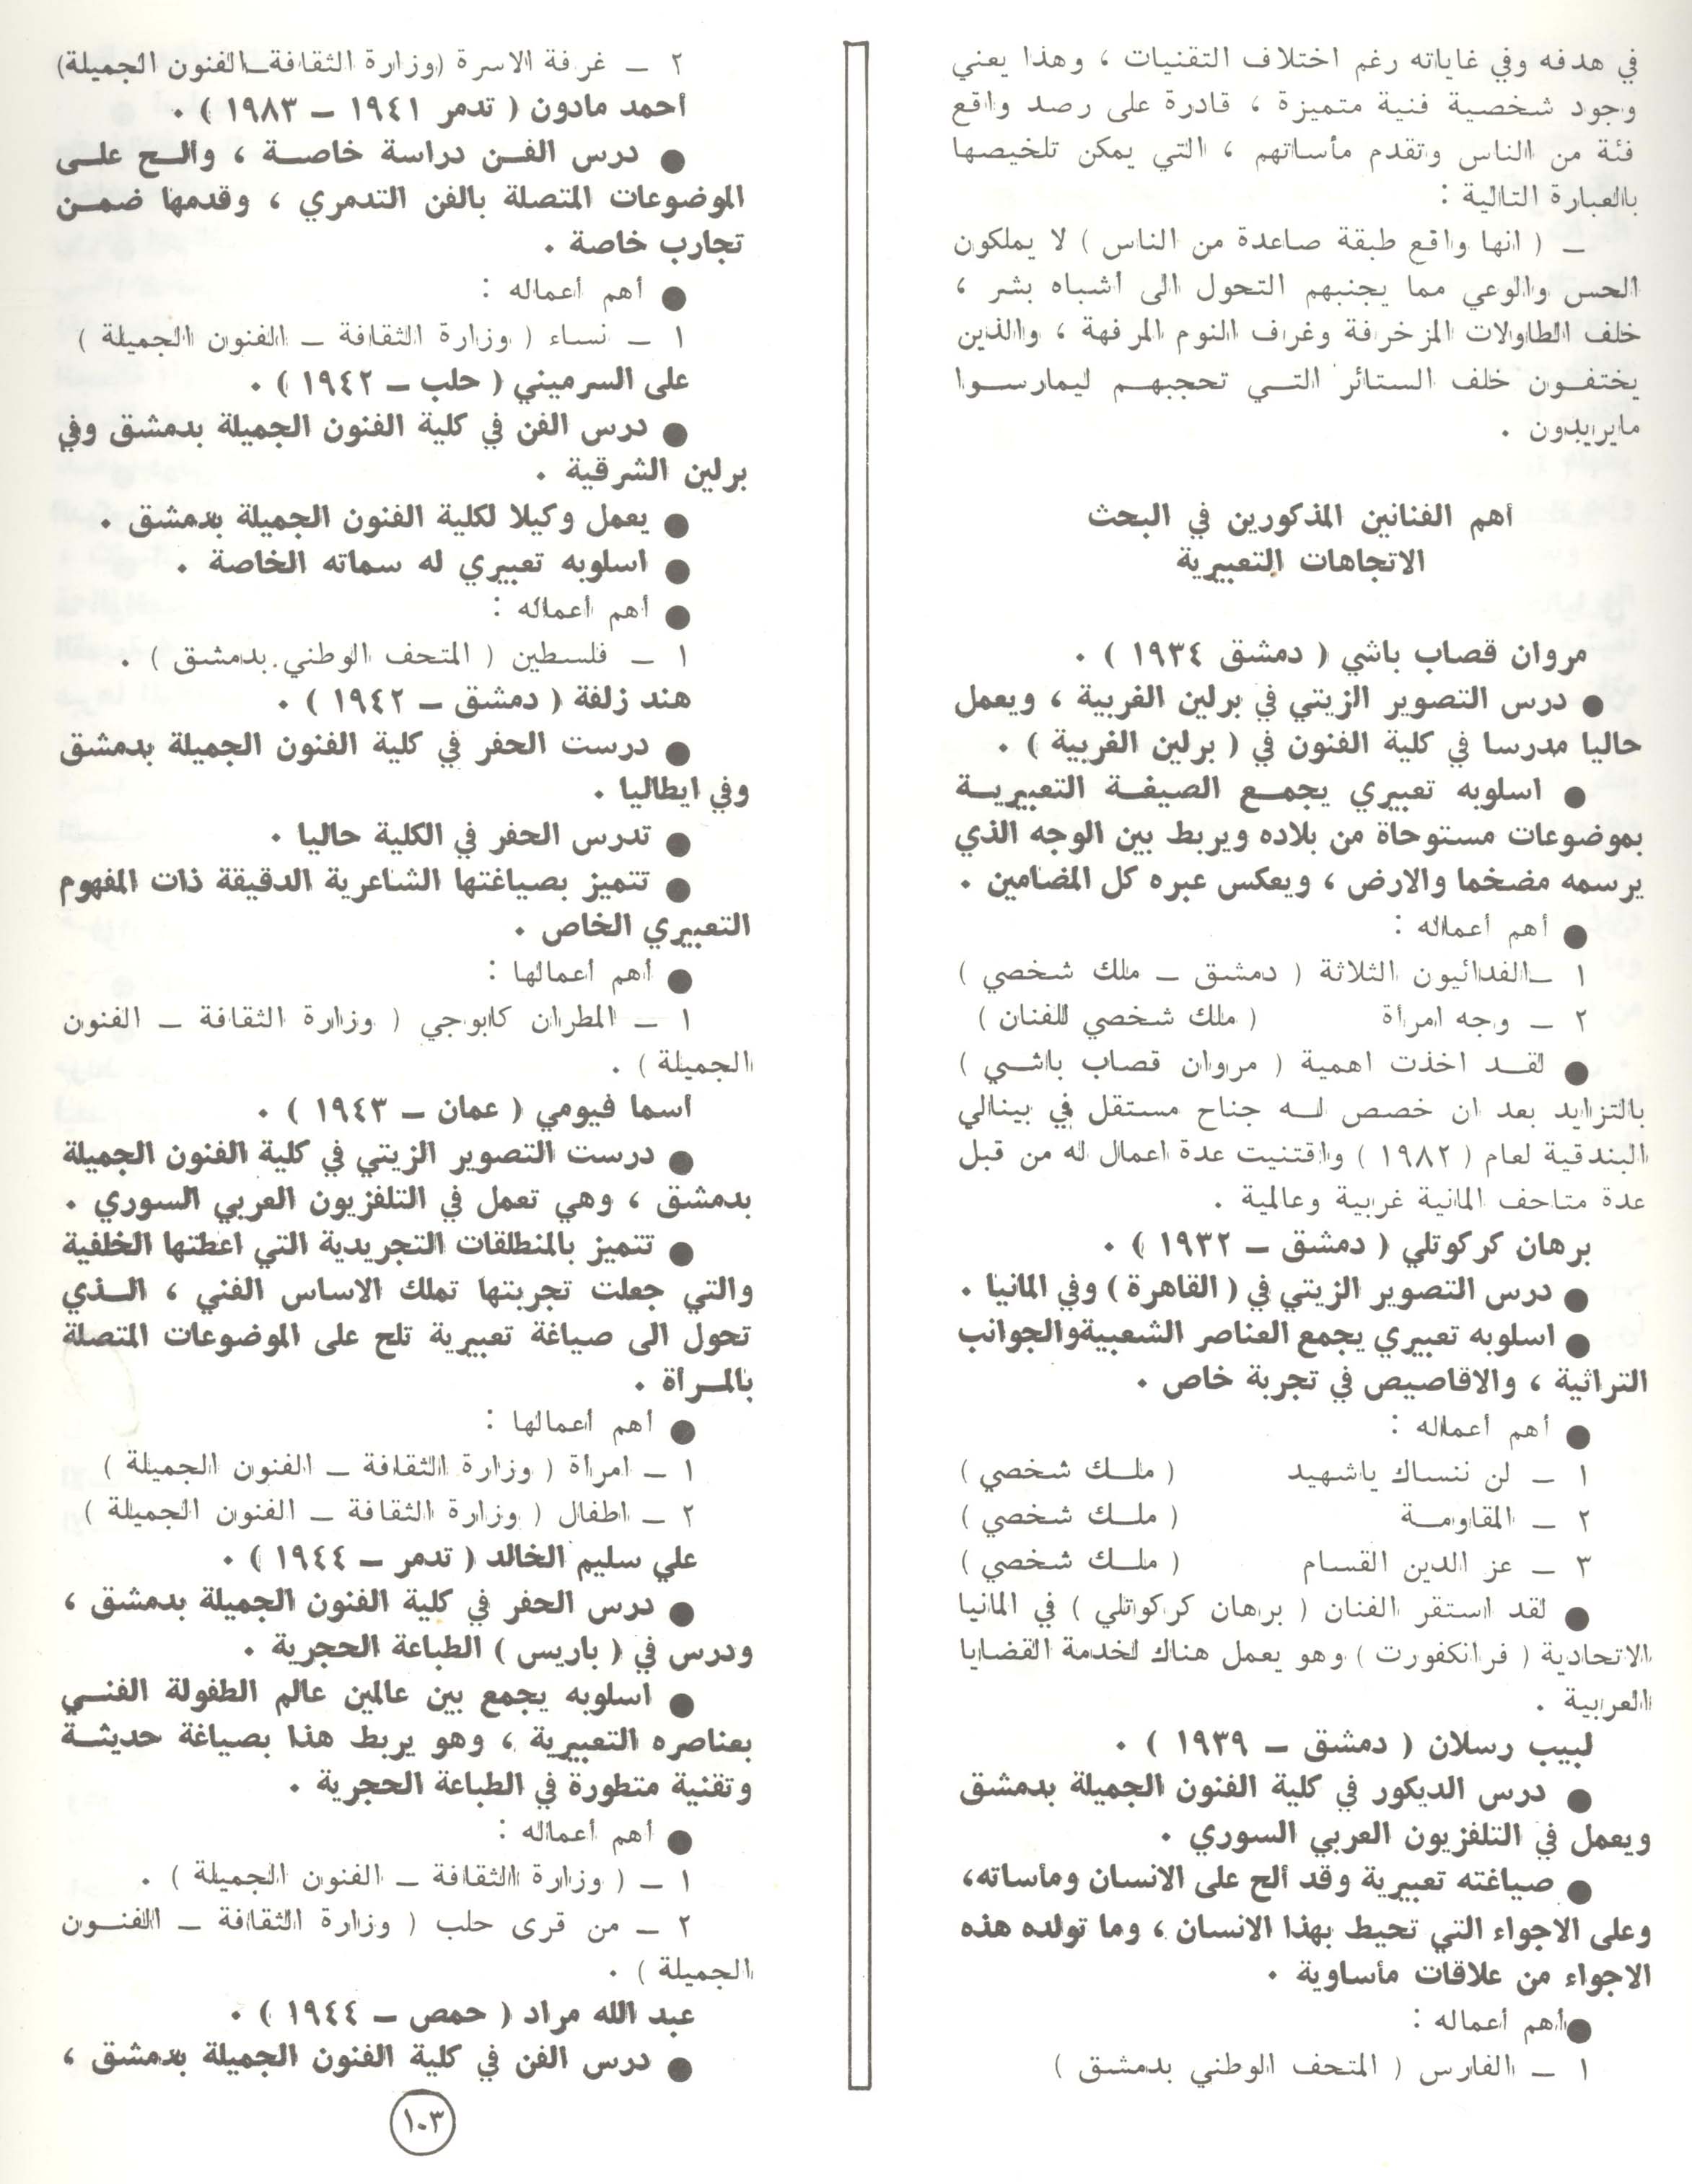 في هدفه وفي غاياته رغم اختلاف التقنيات ، وهذا يعني
وجود شخصية فنية متميزة ، قادرة على رصد واقع
فئة من الناس وتقدم مأساتهم ، التي يمكن تلخيصها
بالعبارة التالية :
ـ ( انها واقع طبقة صاعدة من الناس ) لا يملكون
الحس والوعي مما يجنبهم التحول الى أشباه بشر ،
خلف الطاولات المزخرفة وغرف النوم المرفهة ، والذين
يختفـون خلف الستائر التـي تحجبهـم ليمارسـوا
مايريدون .
أهم الفنانين المذكورين في البحث
الاتجاهات التعبيرية
مروان قصاب باشي ( دمشق ١٩٣٤ ) .
● درس التصوير الزيتي في برلين الغربية ، ويعمل
حاليا مدرسا في كلية الفنون في ( برلين الغربية ) .
● اسلوبه تعبيري يجمـع الصيغـة التعبيريـة
بموضوعات مستوحاة من بلاده ويربط بين الوجه الذي
يرسمه مضخما والارض ، ويعكس عبره كل المضامين .
● أهم أعماله :
١ ـالفدائيون الثلاثة ( دمشق ـ ملك شخصي )
٢ ـ وجه امرأة ( ملك شخصي للفنان )
● لقـد اخذت اهمية ( مروان قصاب باشـي )
بالتزايد بعد ان خصص لـه جناح مستقل في بينالي
البندقية لعام ( ١٩٨٢ ) واقتنيت عدة اعمال له من قبل
عدة متاحف المانية غربية وعالمية .
برهان كركوتلي ( دمشق ـ ١٩٣٢ ) .
● درس التصوير الزيتي في ( القاهرة ) وفي المانيا .
● اسلوبه تعبيري يجمع العناصر الشعبيةوالجوانب
التراثية ، والاقاصيص في تجربة خاص .
● أهم أعماله :
١ ـ لن ننساك ياشهيد ( ملـك شخصي )
٢ ـ المقاومـة ( ملـك شخصي )
٣ ـ عز الدين القسام ( ملـك شخصي )
● لقد استقر الفنان ( برهان كركوتلي ) في المانيا
الاتحادية ( فرانكفورت ) وهو يعمل هناك لخدمة القضايا
العربية .
لبيب رسلان ( دمشق ـ ١٩٣٩ ) .
● درس الديكور في كلية الفنون الجميلة بدمشق
ويعمل في التلفزيون العربي السوري .
● صياغته تعبيرية وقد ألح على الانسان ومأساته،
وعلى الاجواء التي تحيط بهذا الانسان ، وما تولده هذه
الاجواء من علاقات مأساوية .
●أهم أعماله :
١ ـ الفارس ( المتحف الوطني بدمشق )
٢ ـ غرفة الاسرة (وزارة الثقافةـالفنون الجميلة)
أحمد مادون ( تدمر ١٩٤١ ـ ١٩٨٣ ) .
● درس الفـن دراسة خاصـة ، والـح علـى
الموضوعات المتصلة بالفن التدمري ، وقدمها ضمـن
تجارب خاصة .
● أهم أعماله :
١ ـ نساء ( وزارة الثقافة ـ الفنون الجميلة )
على السرميني ( حلب ـ ١٩٤٢ ) .
● درس الفن في كلية الفنون الجميلة بدمشق وفي
برلين الشرقية .
● يعمل وكيلا لكلية الفنون الجميلة بدمشق .
● اسلوبه تعبيري له سماته الخاصة .
● أهم أعماله :
١ ـ فلسطين ( المتحف الوطني بدمشق ) .
هند زلفة ( دمشق ـ ١٩٤٢ ) .
● درست الحفر في كلية الفنون الجميلة بدمشق
وفي ايطاليا .
● تدرس الحفر في الكلية حاليا .
● تتميز بصياغتها الشاعرية الدقيقة ذات المفهوم
التعبيري الخاص .
● أهم أعمالها :
١ ـ المطران كابوجي ( وزارة الثقافة ـ الفنون
الجميلة ) .
أسما فيومي ( عمان ـ ١٩٤٣ ) .
● درست التصوير الزيتي في كلية الفنون الجميلة
بدمشق ، وهي تعمل في التلفزيون العربي السوري .
● تتميز بالمنطلقات التجريدية التي اعطتها الخلفية
والتي جعلت تجربتها تملك الاساس الفني ، الـذي
تحول الى صياغة تعبيرية تلح على الموضوعات المتصلة
بالمـرأة .
● أهم أعمالها :
١ ـ امرأة ( وزارة الثقافة ـ الفنون الجميلة )
٢ ـ اطفال ( وزارة الثقافة ـ الفنون الجميلة )
علي سليم الخالد ( تدمر ـ ١٩٤٤ ) .
● درس الحفر في كلية الفنون الجميلة بدمشق ،
ودرس في ( باريس ) الطباعة الحجرية .
● اسلوبه يجمع بين عالمين عالم الطفولة الفنـي
بعناصره التعبيرية ، وهو يربط هذا بصياغة حديثـة
وتقنية متطورة في الطباعة الحجرية .
● أهم أعماله :
١ ـ ( وزارة الثقافة ـ الفنون الجميلة ) .
٢ ـ من قرى حلب ( وزارة الثقافة ـ الفنـون
الجميلة ) .
عبد الله مراد ( حمص ـ ١٩٤٤ ) .
● درس الفن في كلية الفنون الجميلة بدمشق ،
١٠٣